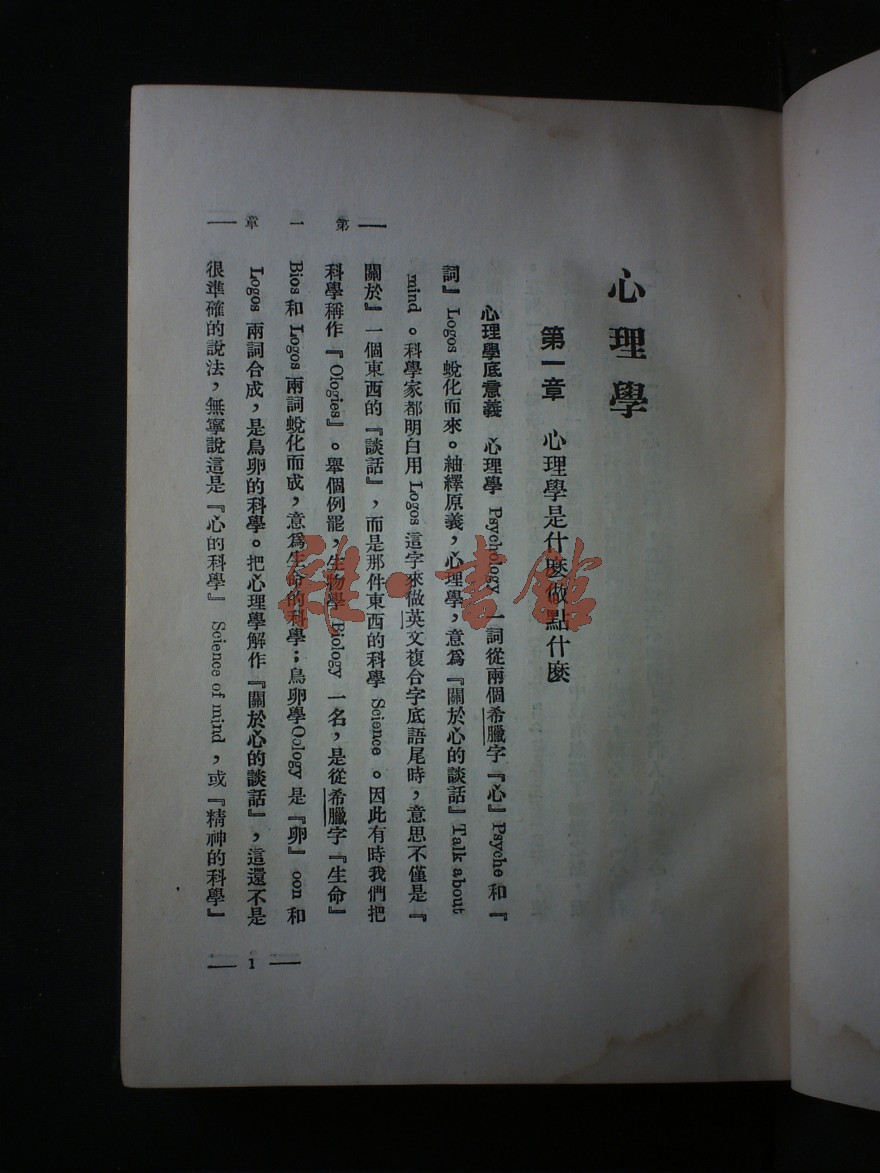 心理學
第一章 心理學是什麽做點什麽
心理學底意義 心理學 Psychology 一詞從兩個希臘字『心』Psyche 和『
詞』Logos 蛻化而來。紬繹原義，心理學，意爲『關於心的談話』Talk about
mind。科學家都明白用 Logos 這字來做英文複合字底語尾時，意思不僅是『
關於』一個東西的『談話』，而是那件東西的科學 Science。因此有時我們把
科學稱作『Ologies』。舉個例罷，生物學 Biology 一名，是從希臘字『生命』
Bios 和 Logos 兩詞蛻化而成，意爲生命的科學；鳥卵學 Oology 是『卵』oon 和
Logos 兩詞合成，是鳥卵的科學。把心理學解作『關於心的談話』，這還不是
很準確的說法，無寧說這是『心的科學』 Science of mind，或『精神的科學』
第一章
1
雜·書館